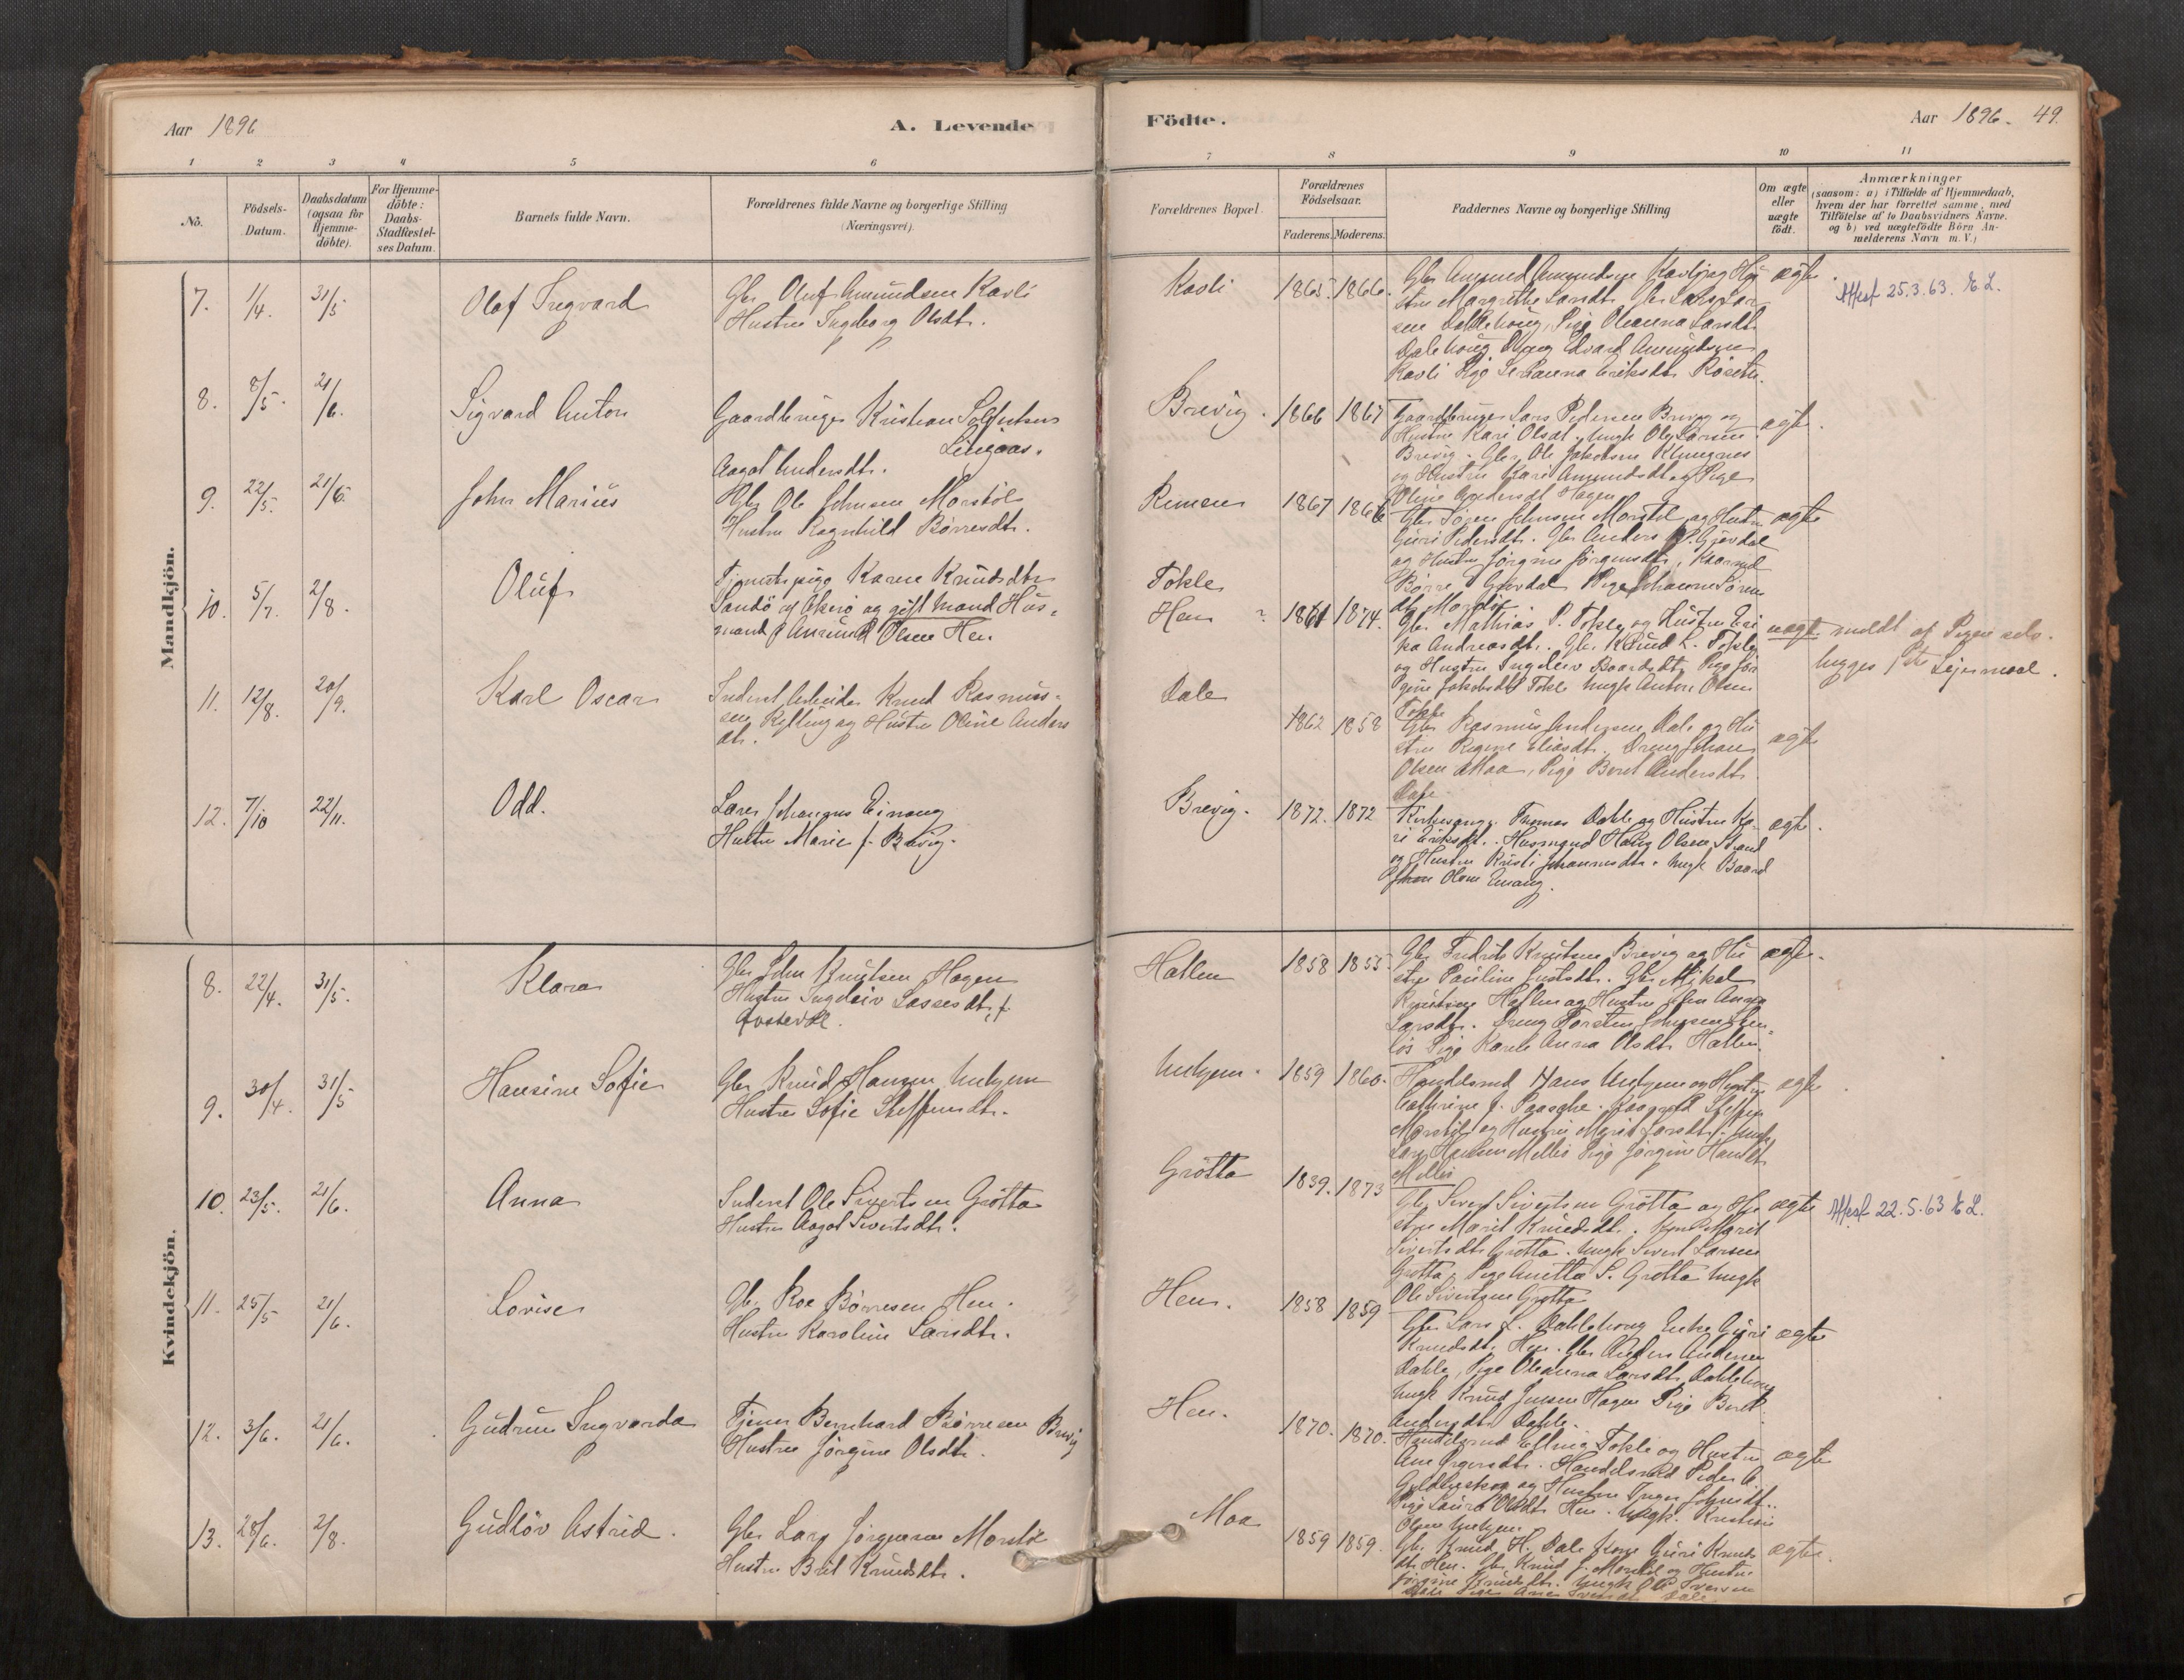 Aar 1896
A. Levende
Födte.
Aar 1896. 49.
1 2 3 4 5 6 7 8 9 10 11
No.
Födsels-Datum.
Daabsdatum (ogsaa for Hjemme-döbte).
For Hjemme-döbte: Daabs-Stadfæstel-ses Datum.
Barnets fulde Navn.
Forældrenes fulde Navne og borgerlige Stilling (Næringsvei).
Forældrenes Bopæl.
Forældrenes Födselsaar.
Faderens. Moderens.
Faddernes Navne og borgerlige Stilling
Om ægte eller uægte födt.
Anmærkninger
(saasom: a) i Tilfælde af Hjemmedaab,
hvem der har forrettet samme, med
Tilföielse af to Daabsvidners Navne.
og b) ved uægtefödte Börn An-
melderens Navn m. V.)
Mandkjön.
7. 1/4. 31/5 Olaf Ingvard
Gbr Oluf Amundsen Kavli
Hustru Ingeborg Olsdtr.
Kavli 1865. 1866.
Gbr Amund Amundsen Kavli og Hu-
stru Margrethe Larsdtr. Gbr Lars Lar-
sen Dahlehoug, Pige Oleanna Larsdtr
Dalehoug, Edvard Amundsen
Kavli Pige Eriksdtr
ægte.
Attest 25.3.63. E.L.
8. 8/5. 21/6. Sigvard Anton
Gaardbruger Kristian
Aagot Andersdtr.
Brevig. 1866 1867
Gaardbruger Lars Pedersen Brevig og
Hustru Kari Olsdt. Ungk Ole Larsen
Brevig. Gbr. Ole Jakobsen Klungnes
og Hustru Kari Amundsdt og Pige
Oline Andersdt Hagen
ægte.
9. 22/5. 21/6 John Marius
Gbr Ole Johnsen Morstöl
Hustru Ragnhild Börresdtr.
Remen 1867 1866
Gbr Johnsen Morstöl og Hustru
Guri Pedersdtr. Gbr Anders Gjövdal
og Hustru Jörgine Jörgensdtr,
Börre Gjövdal Pige
ægte
10. 5/7. 2/8. Oluf
Tjenestepige Karen Knudsdtr
Sandö af Akerö og gift Mand Hus-
mand Amund Olsen Hen.
Tokle
Hen 1861 1874.
Gbr. Mathias P. Tokle og Hustru Eri
ka Andreasdtr. Gbr. Knud L. Tokle
og Hustru Ingeleiv Baardsdtr, Pige Jör
gine Jakobsdt Tokle Ungk Anton Olsen
Tokle
uægte. meldt af Pigen selv.
begges 1ste Leiermaal.
11. 12/8. 20/9. Karl Oscar
Inderst Arbeider Knud Rasmus-
sen Kylling og Hustru Oline Anders
dtr.
Dale 1862 1858
Gbr Rasmus Andersen Dale og Hu
stru Regine Eliasdtr. Dreng Johan
Olsen Maa, Pige Beret Andersdtr
Dale
ægte
12. 7/10 22/11. Odd.
Lærer Johannes Einang
Hustru Marie f. Brevig.
Brevig. 1872. 1872
Kirkesanger Thomas Dahle og Hustru Ka-
ri Eriksdt. Husmand Hans Olsen Strand
og Hustru Kristi Johannesdtr. Ungk Baard
Olsen Einang.
ægte.
Kvindekjön.
8. 22/4. 31/5. Klara
Gbr John Knutsen Hagen
Hustru Ingeleiv Lassesdtr, f.
Hatlen 1858 1855
Gbr Fredrik Knutsen Brevig og Hu
stru Pauline Gbr Mikal
Knutsen Hatlen og Hustru Anna
Larsdtr. Dreng Torsten Johnsen
Pige Karen Anna Olsdtr Hatlen.
ægte.
9. 30/4. 31/5 Hansine Sofie
Gbr Knud Hansen Unhjem
Hustru Sofie Steffensdtr.
Unhjem. 1859 1860.
Handelsmd Hans Unhjem og Hustru
Cathrine f. Paasche. Kaarmd Steffen
Morstöl og Hustru Marit Larsdtr. Ungk
Lars Hansen Mellis Pige Jörgine Hansdt
Mellis
ægte.
10. 23/5. 21/6. Anna
Inderst Ole Sivertsen Grötta
Hustru Aagot Sivertsdtr.
Grötta 1839. 1873
Gbr Sivert Sivertsen Grötta og Hu
stru Marit Knudsdt. Marit
Sivertsdtr Grötta. Ungk Sivert Larsen
Grötta, Pige Anetta S. Grötta Ungk
Ole Sivertsen Grötta
ægte
Attest 22.5.63 E.L.
11. 25/5 21/6. Lovise
Gbr. Roe Börresen Hen.
Hustru Karoline Larsdtr.
Hen. 1858 1859
Gbr Lars L. Dahlehoug Enke Guri
Knudsdtr. Hen. Gbr Anders Andersen
Dahle, Pige Oleanna Larsdtr Dahlehoug
Ungk Knud Jensen Hagen Pige Beret
Andersdtr Dahle.
ægte
12. 3/6. 21/6. Gudrun Ingvarda
Tjener Bernhard Börresen Brevig
Hustru Jörgine Olsdtr.
Hen. 1870. 1870.
Handelsmd Elling Tokle og Hustru
Ane Handelsmd Peder A.
og Hustru
Pige Laura Olsdtr Hen. Ungk. Kristian
Olsen Unhjem
ægte
13. 28/6. 2/8. Gudlöv Astrid.
Gbr Lars Jörgensen Morstöl
Hustru Brit Knudsdtr.
Moa 1859 1859.
Gbr. Knud H. Dale Guri Knuds
dtr Hen. Gbr Knud J. Morstöl og Hustru
Jörgine Knudsdtr. Ungk
ægte.